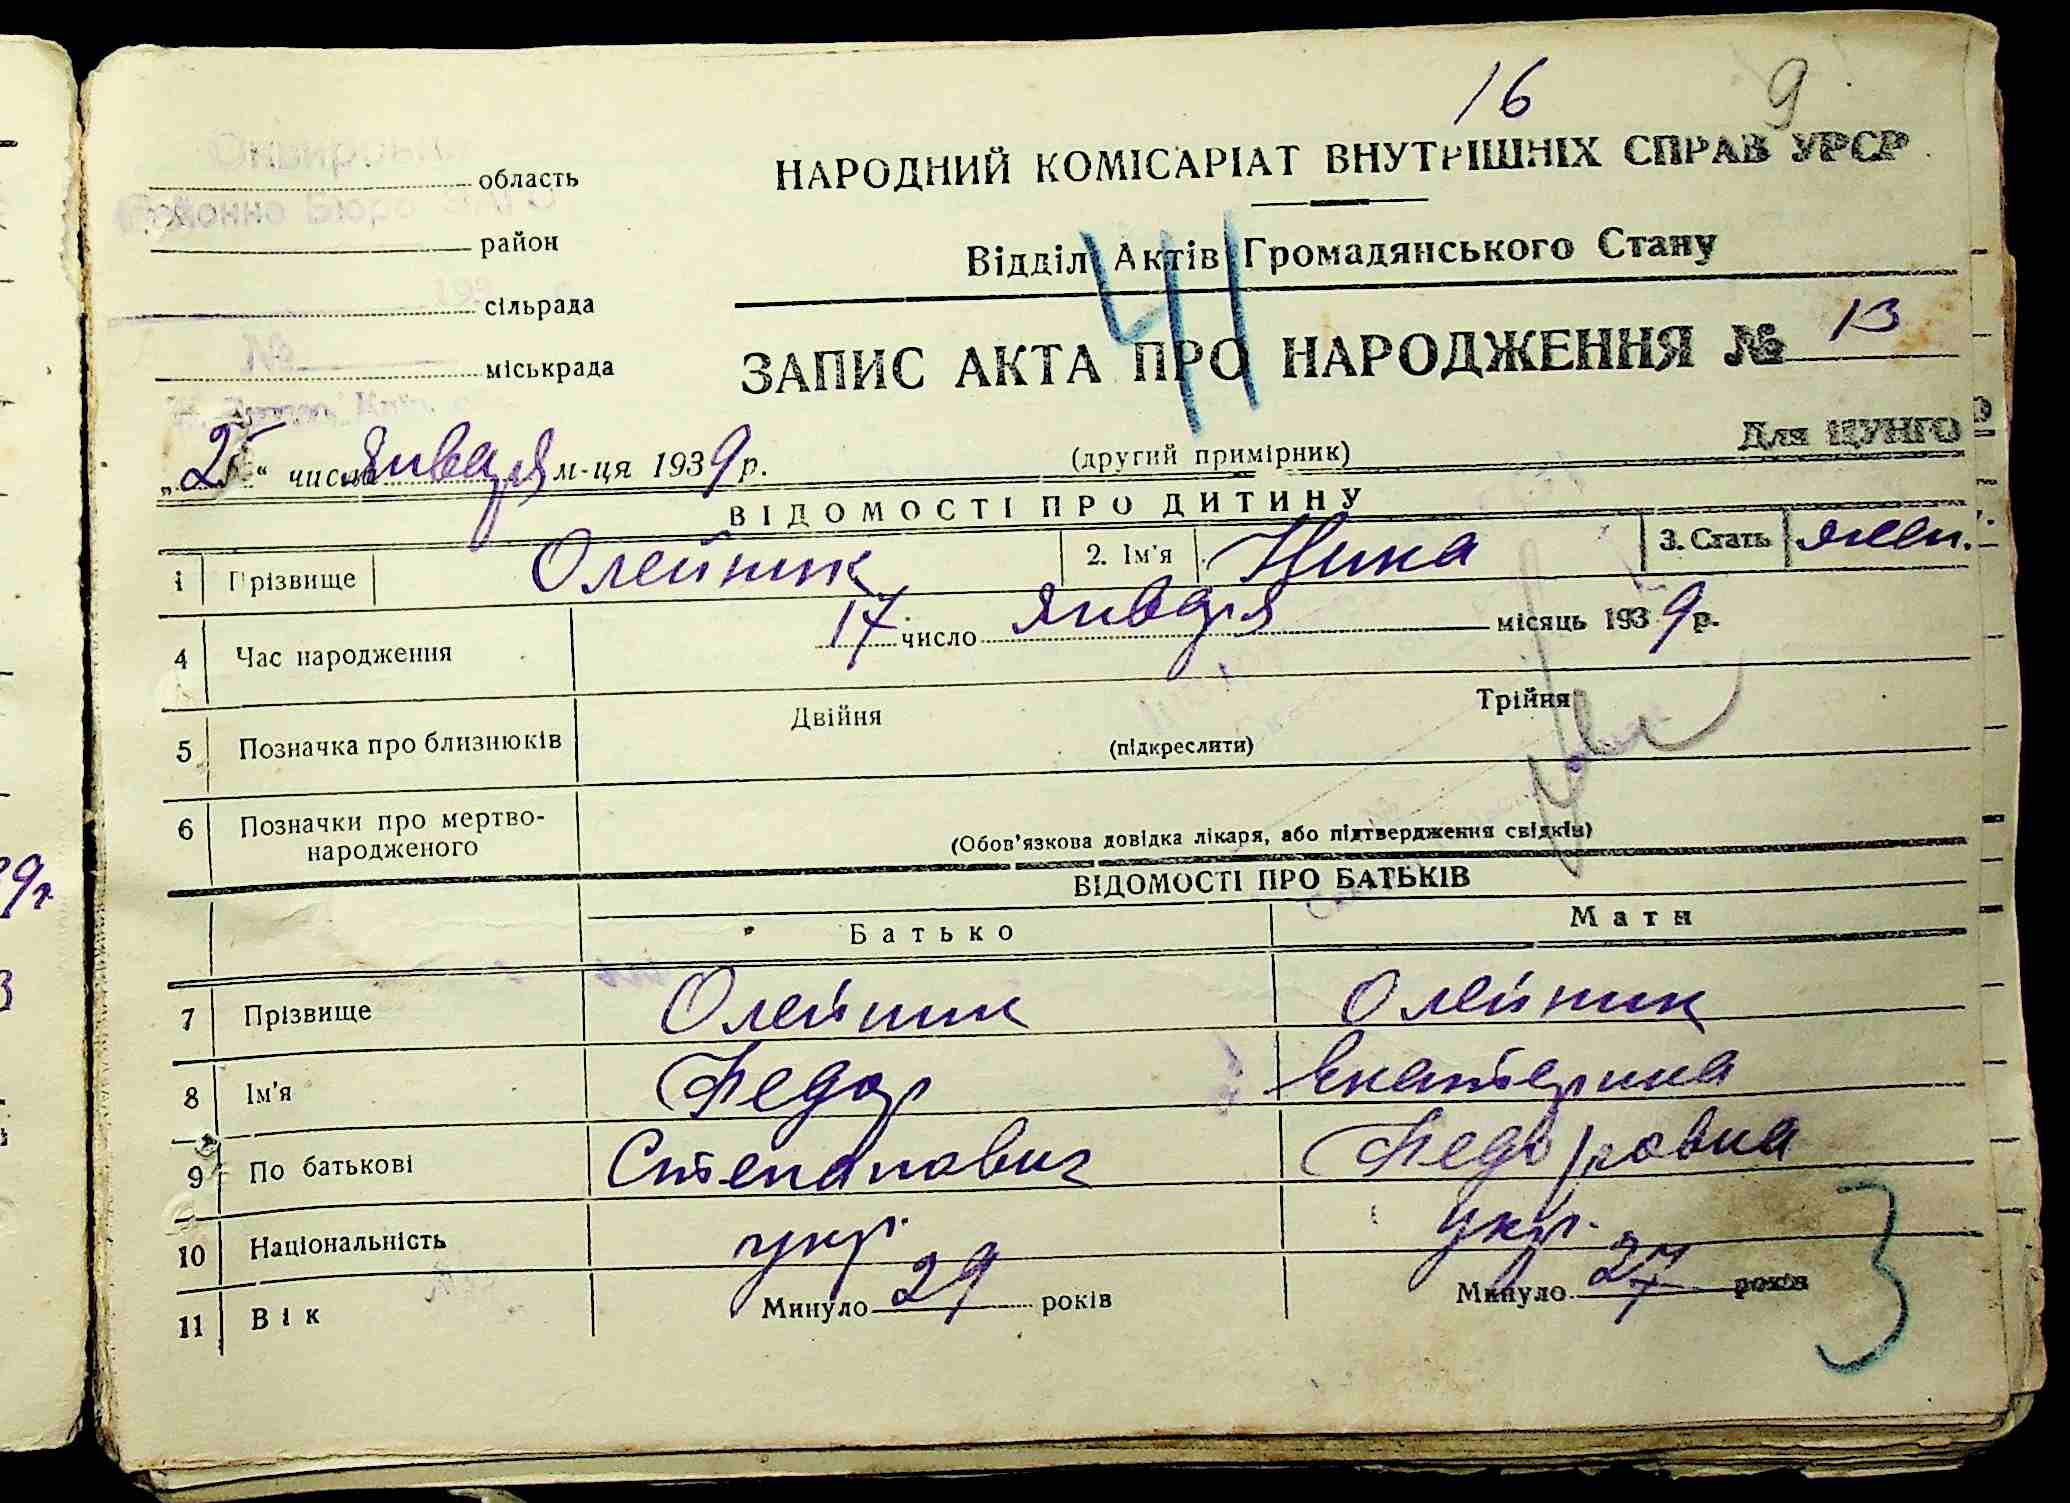 16 9
НАРОДНИЙ КОМІСАРІАТ ВНУТРІШНІХ СПРАВ УРСР
область
район
сільрада
міськрада
Відділ Актів Громадянського Стану
41
ЗАПИС АКТА ПРО НАРОДЖЕННЯ № 13
„25“ число января м-ця 1939 р.
(другий примірник)
Для ЦУНГО
ВІДОМОСТІ ПРО ДИТИНУ
1 Прізвище Олейник 2. Ім'я Нина 3. Стать жен.
4 Час народження 17 число января місяць 1939 р.
5 Позначка про близнюків Двійня Трійня
(підкреслити)
6 Позначки про мертво-
народженого
(Обов'язкова довідка лікаря, або підтвердження свідків)
ВІДОМОСТІ ПРО БАТЬКІВ
Батько Мати
7 Прізвище Олейник Олейник
8 Ім'я Федор Екатерина
9 По батькові Степанович Федоровна
10 Національність укр. укр.
11 Вік Минуло 29 років Минуло 27 років
3